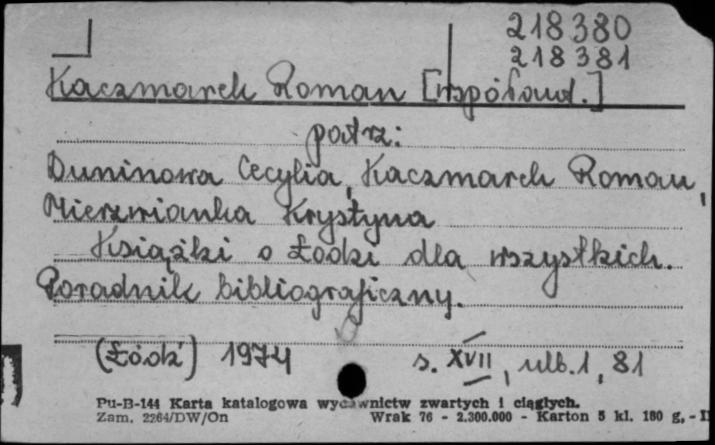 218380
218381
Kaczmarek Roman [współaut.]
patrz:
Duninowa Cecylia, Kaczmarek Roman,
Mierzwianka Krystyna
Książki o Łodzi dla wszystkich.
Poradnik bibliograficzny.
(Łódź) 1974 s. XVII, nlb.1, 81
Pu-B-144 Karta katalogowa wydawnictw zwartych i ciągłych.
Zam. 2264/DW/On Wrak 76 - 2.300.000 - Karton 5 kl. 180 g, - II